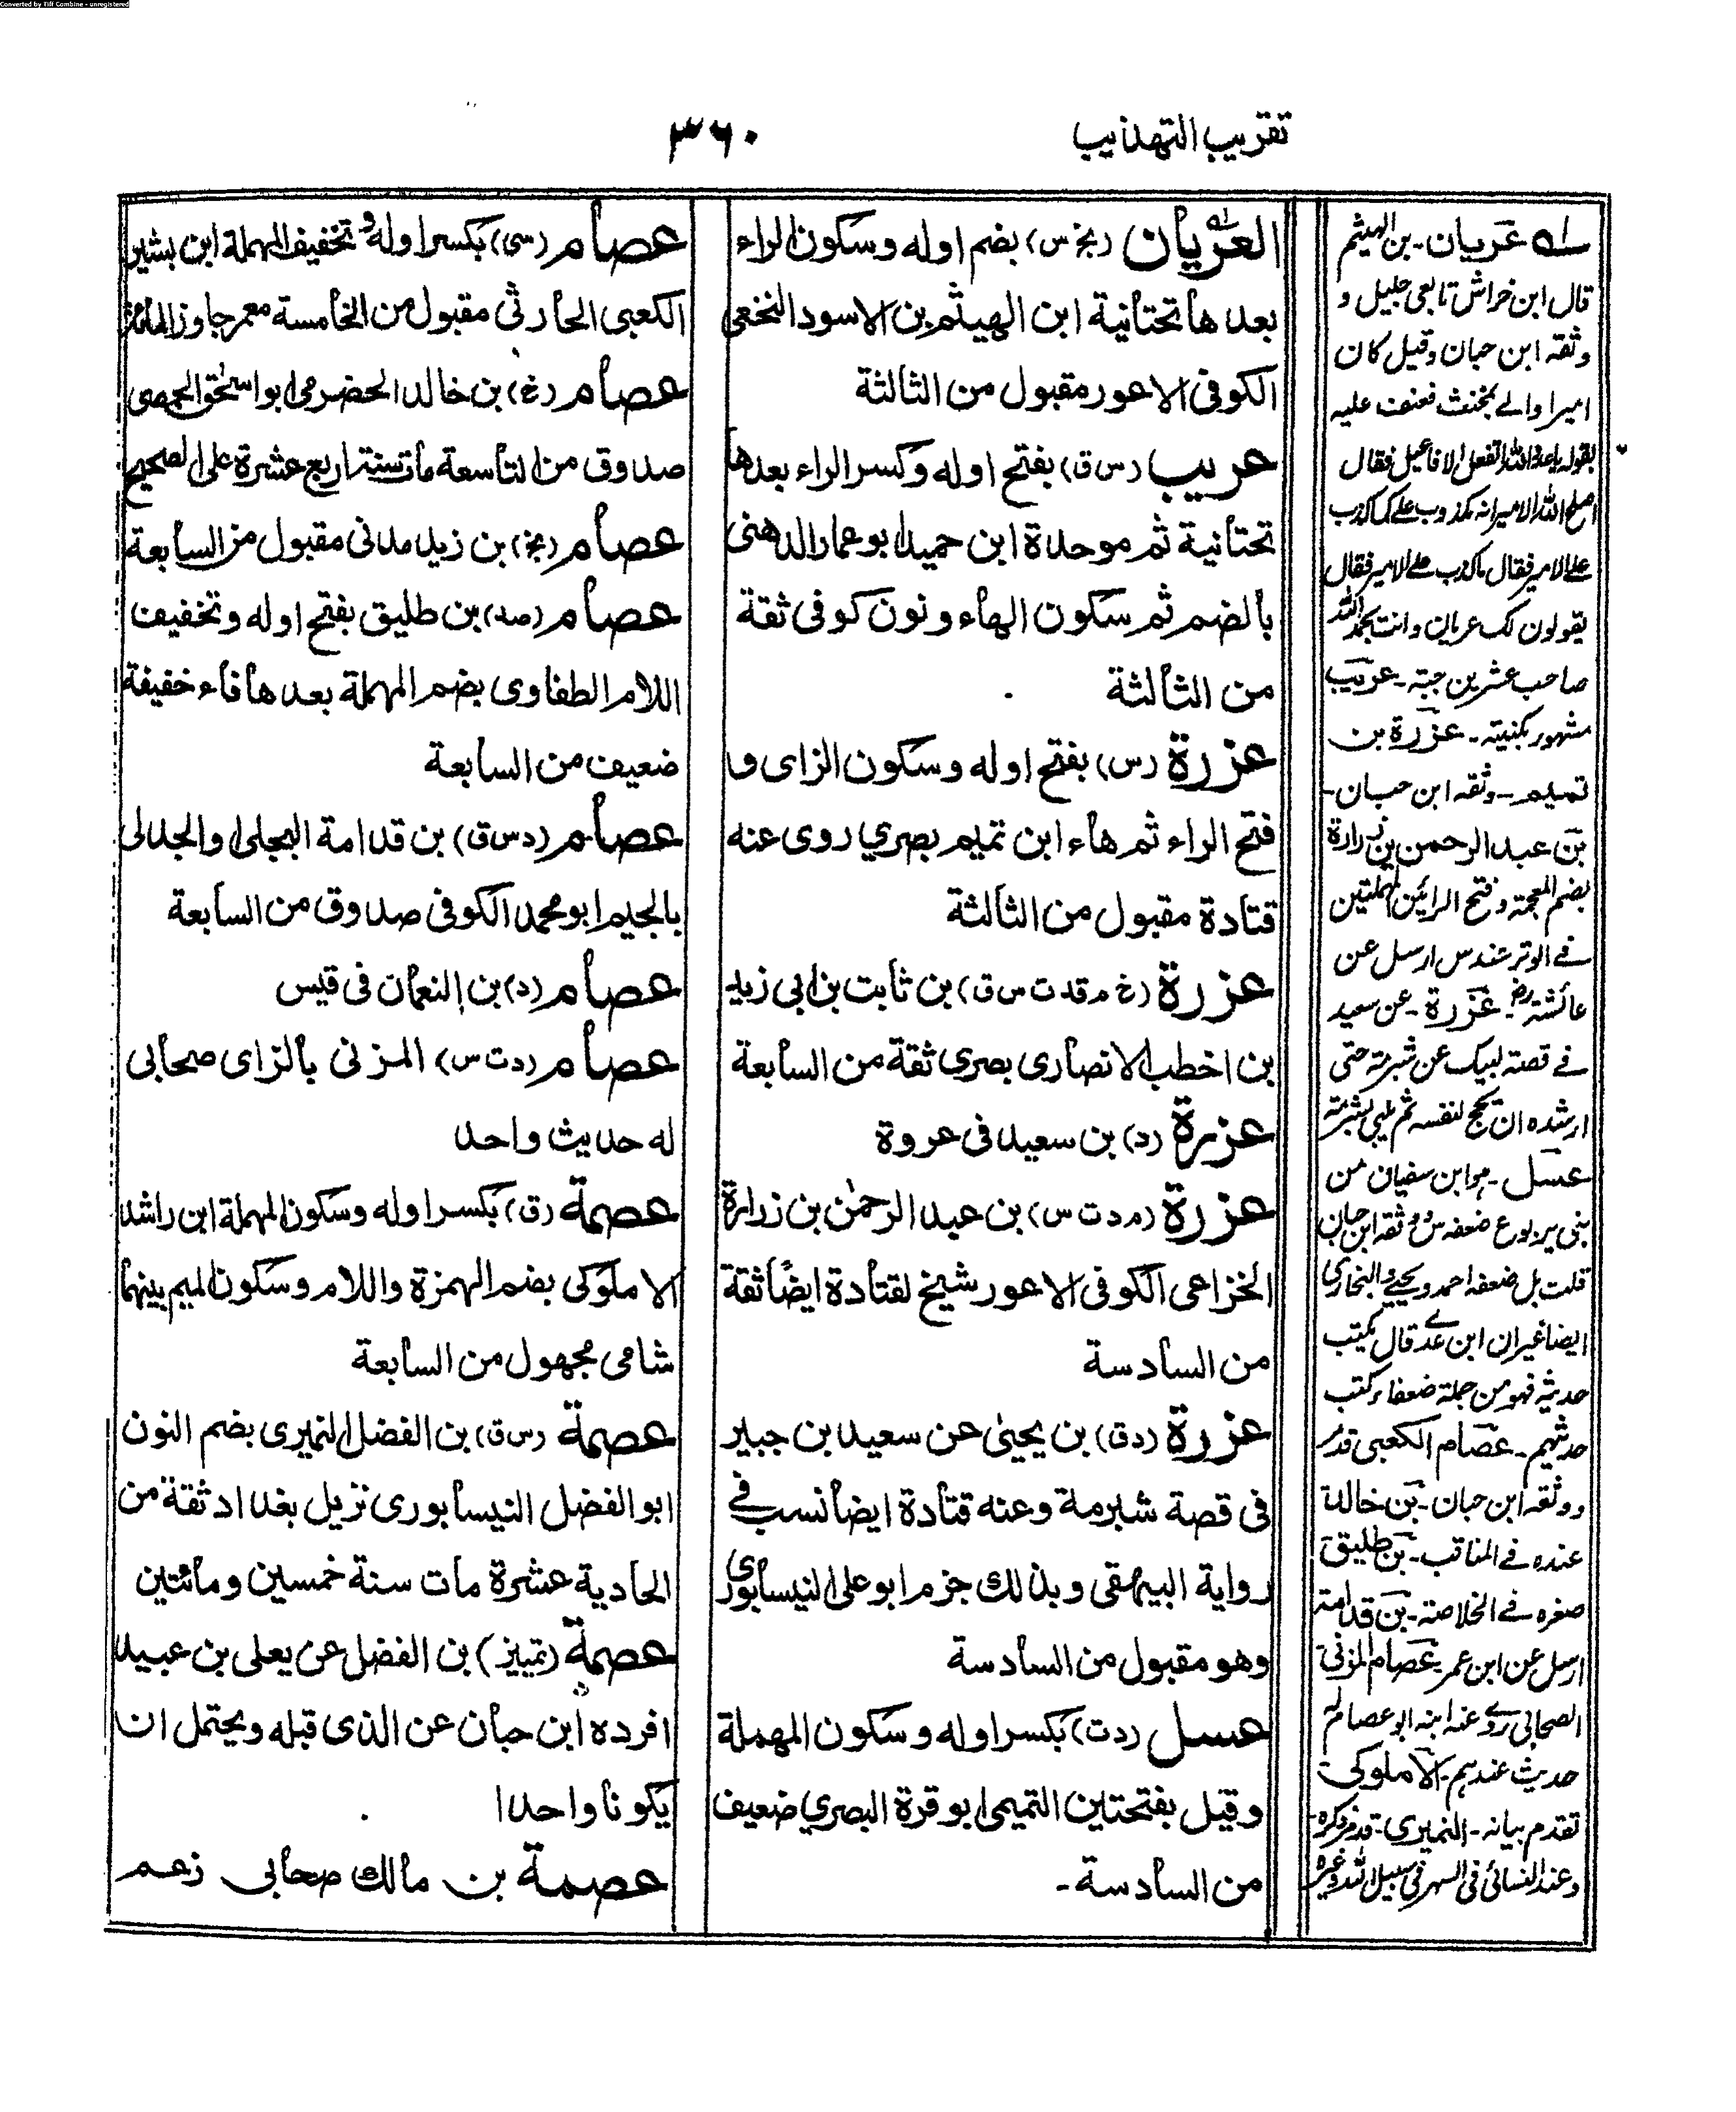 Converted by Tiff Combine - unregistered
تقريب التهذيب
٣٦٠
العريان (بخ س) بضم اوله وسكون الراء
بعدها تحتانية ابن الهيثم بن الاسود النخعي
الكوفى الاعور مقبول من الثالثة
عريب (س ق) بفتح اوله وكسر الراء بعدها
تحتانية ثم موحدة ابن حميد ابو عمار الدهنى
بالضم ثم سكون الهاء ونون كوفى ثقة
من الثالثة
عزرة (س) بفتح اوله وسكون الزاى و
فتح الراء ثم هاء ابن تميم بصري روى عنه
قتادة مقبول من الثالثة
عزرة (خ م قد ت س ق) بن ثابت بن ابى زيد
بن اخطب الانصارى بصرى ثقة من السابعة
عزرة (د) بن سعيد فى عروة
عزرة (م د ت س) بن عبد الرحمٰن بن زرارة
الخزاعى الكوفى الاعور شيخ لقتادة ايضًا ثقة
من السادسة
عزرة (د ق) بن يحيىٰ عن سعيد بن جبير
فى قصة شبرمة وعنه قتادة ايضا نسب في
رواية البيهقى وبذلك جزم ابو على النيسابورى
وهو مقبول من السادسة
عسل (د ت) بكسر اوله وسكون المهملة
وقيل بفتحتين التميمى ابو قرة البصري ضعيف
من السادسة -
عصام (سى) بكسر اوله وتخفيف المهملة ابن بشير
الكعبى الحارثى مقبول من الخامسة معمر جاوز المائة
عصام (خ) بن خالد الحضرمى ابو اسحٰق الحمصى
صدوق من التاسعة مات سنة اربع عشرة على الصحيح
عصام (بخ) بن زيد مدنى مقبول من السابعة
عصام (صد) بن طليق بفتح اوله وتخفيف
اللام الطفاوى بضم المهملة بعدها فاء خفيفة
ضعيف من السابعة
عصام (د س ق) بن قدامة البجلى او الجدلى
بالجيم ابو محمد الكوفى صدوق من السابعة
عصام (د) بن النعمان فى قيس
عصام (د ت س) المزنى بالزاى صحابى
له حديث واحد
عصمة (ق) بكسر اوله وسكون المهملة ابن راشد
الاملوكى بضم الهمزة واللام وسكون الميم بينهما
شامى مجهول من السابعة
عصمة (س ق) بن الفضل النميرى بضم النون
ابو الفضل النيسابورى نزيل بغداد ثقة من
الحادية عشرة مات سنة خمسين ومائتين
عصمة (تمييز) بن الفضل عن يعلى بن عبيد
افرده ابن حبان عن الذى قبله ويحتمل ان
يكونا واحدا
عصمة بن مالك صحابى زعم
له عريان - بن الهيثم
قال ابن خراش تابعى جليل و
وثقه ابن حبان وقيل كان
اميرا والے بمخنث فعنف عليه
بقوله يا عدو الله اتفعل الافاعيل فقال
اصلح الله الامير انه مكذوب علے كما كذب
علے الامير فقال ما كذب علے الامير فقال
يقولون لك عريان وانت بحمد الله
صاحب عشرين جبة - عريب
مشهور بكنيته - عزرة بن
تميم - وثقه ابن حبان -
بن عبد الرحمن بن زرارة
بضم المعجمة وفتح الرائين المهملتين
فے الوتر عند س ارسل عن
عائشة رض - عزرة - عن سعيد
فے قصة لبيك عن شبرمة حتى
ارشده ان تحج لنفسه ثم يلبى بشبرمة
عسل - هو ابن سفيان من
بنى يربوع ضعفه س ووثقه ابن حبان
قلت بل ضعفه احمد ويحيے والبخاري
ايضا غير ان ابن عدے قال يكتب
حديثه فهو من جملة ضعفاء كتب
حديثهم - عصام الكعبى قد مر
ووثقه ابن حبان - بن خالد
عنده فے المناقب - بن طليق
صغره فے الخلاصة - بن قدامة
ارسل عن ابن عمر - عصام المزنى
الصحابى روے عنه ابنه ابو عصام له
حديث عندهم - الاملوكى
تقدم بيانه - النميرى - قد مر ذكره -
وعند النسائى فى السهر فى سبيل الله وغيره